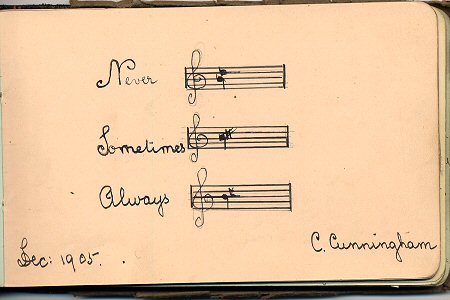 Never
Sometimes
Always
C. Cunningham
Dec: 1905.